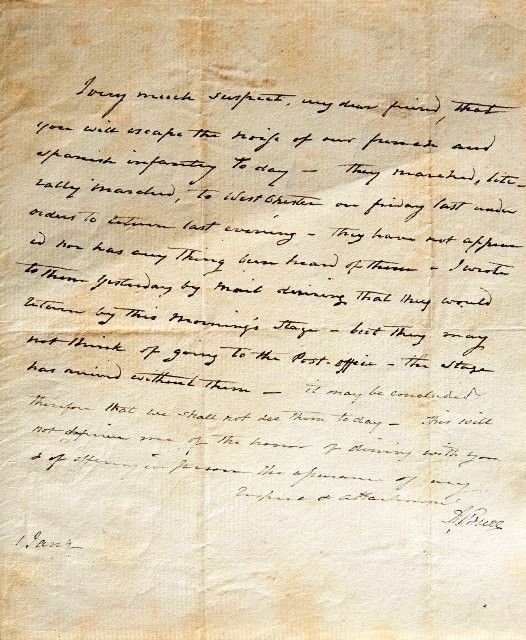 I very much suspect, my dear friend, that
you will escape the noise of our french and
Spanish infantry to day — they marched, lite-
rally marched, to West Chester on friday last under
orders to return last evening — they have not appear
ed nor has any thing been heard of them — I wrote
to them yesterday by mail desiring that they would
return by this morning's Stage — but they may
not think of going to the Post-office — the Stage
has arrived without them — it may be concluded
therefore that we shall not see them today — This will
not deprive me of the honor of dining with you
& of offering in person the assurance of my
respect & attachment
A. Burr
1 Jany